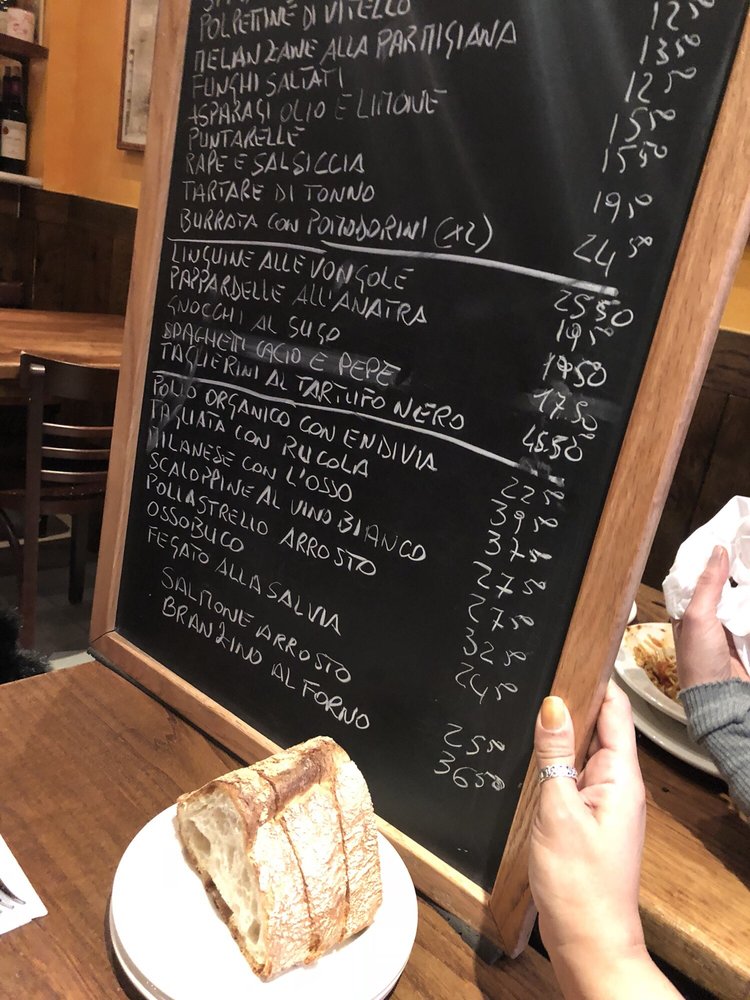 POLPETTINE DI VITELLO
MELANZANE ALLA PARMIGIANA 12 50
FUNGHI SALTATI 13 50
ASPARAGI OLIO E LIMONE 12 50
PUNTARELLE 15 50
RAPE E SALSICCIA 15 50
TARTARE DI TONNO 19 50
BURRATA CON POMODORINI (x2) 24 50
LINGUINE ALLE VONGOLE 25 50
PAPPARDELLE ALL'ANATRA 19 50
GNOCCHI AL SUGO 19 50
SPAGHETTI CACIO E PEPE 17 50
TAGLIERINI AL TARTUFO NERO 45 50
POLLO ORGANICO CON ENDIVIA 22 50
TAGLIATA CON RUCOLA 39 50
MILANESE CON L'OSSO 37 50
SCALOPPINE AL VINO BIANCO 27 50
POLLASTRELLO ARROSTO 27 50
OSSOBUCO 32 50
FEGATO ALLA SALVIA 24 50
SALMONE ARROSTO 25 50
BRANZINO AL FORNO 36 50